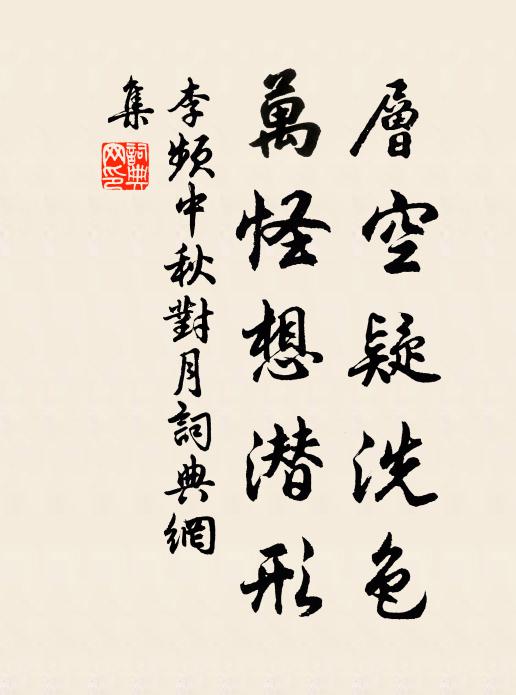 層空疑洗色
萬怪想潛形
李頻中秋對月詞典網
集
詞典網印